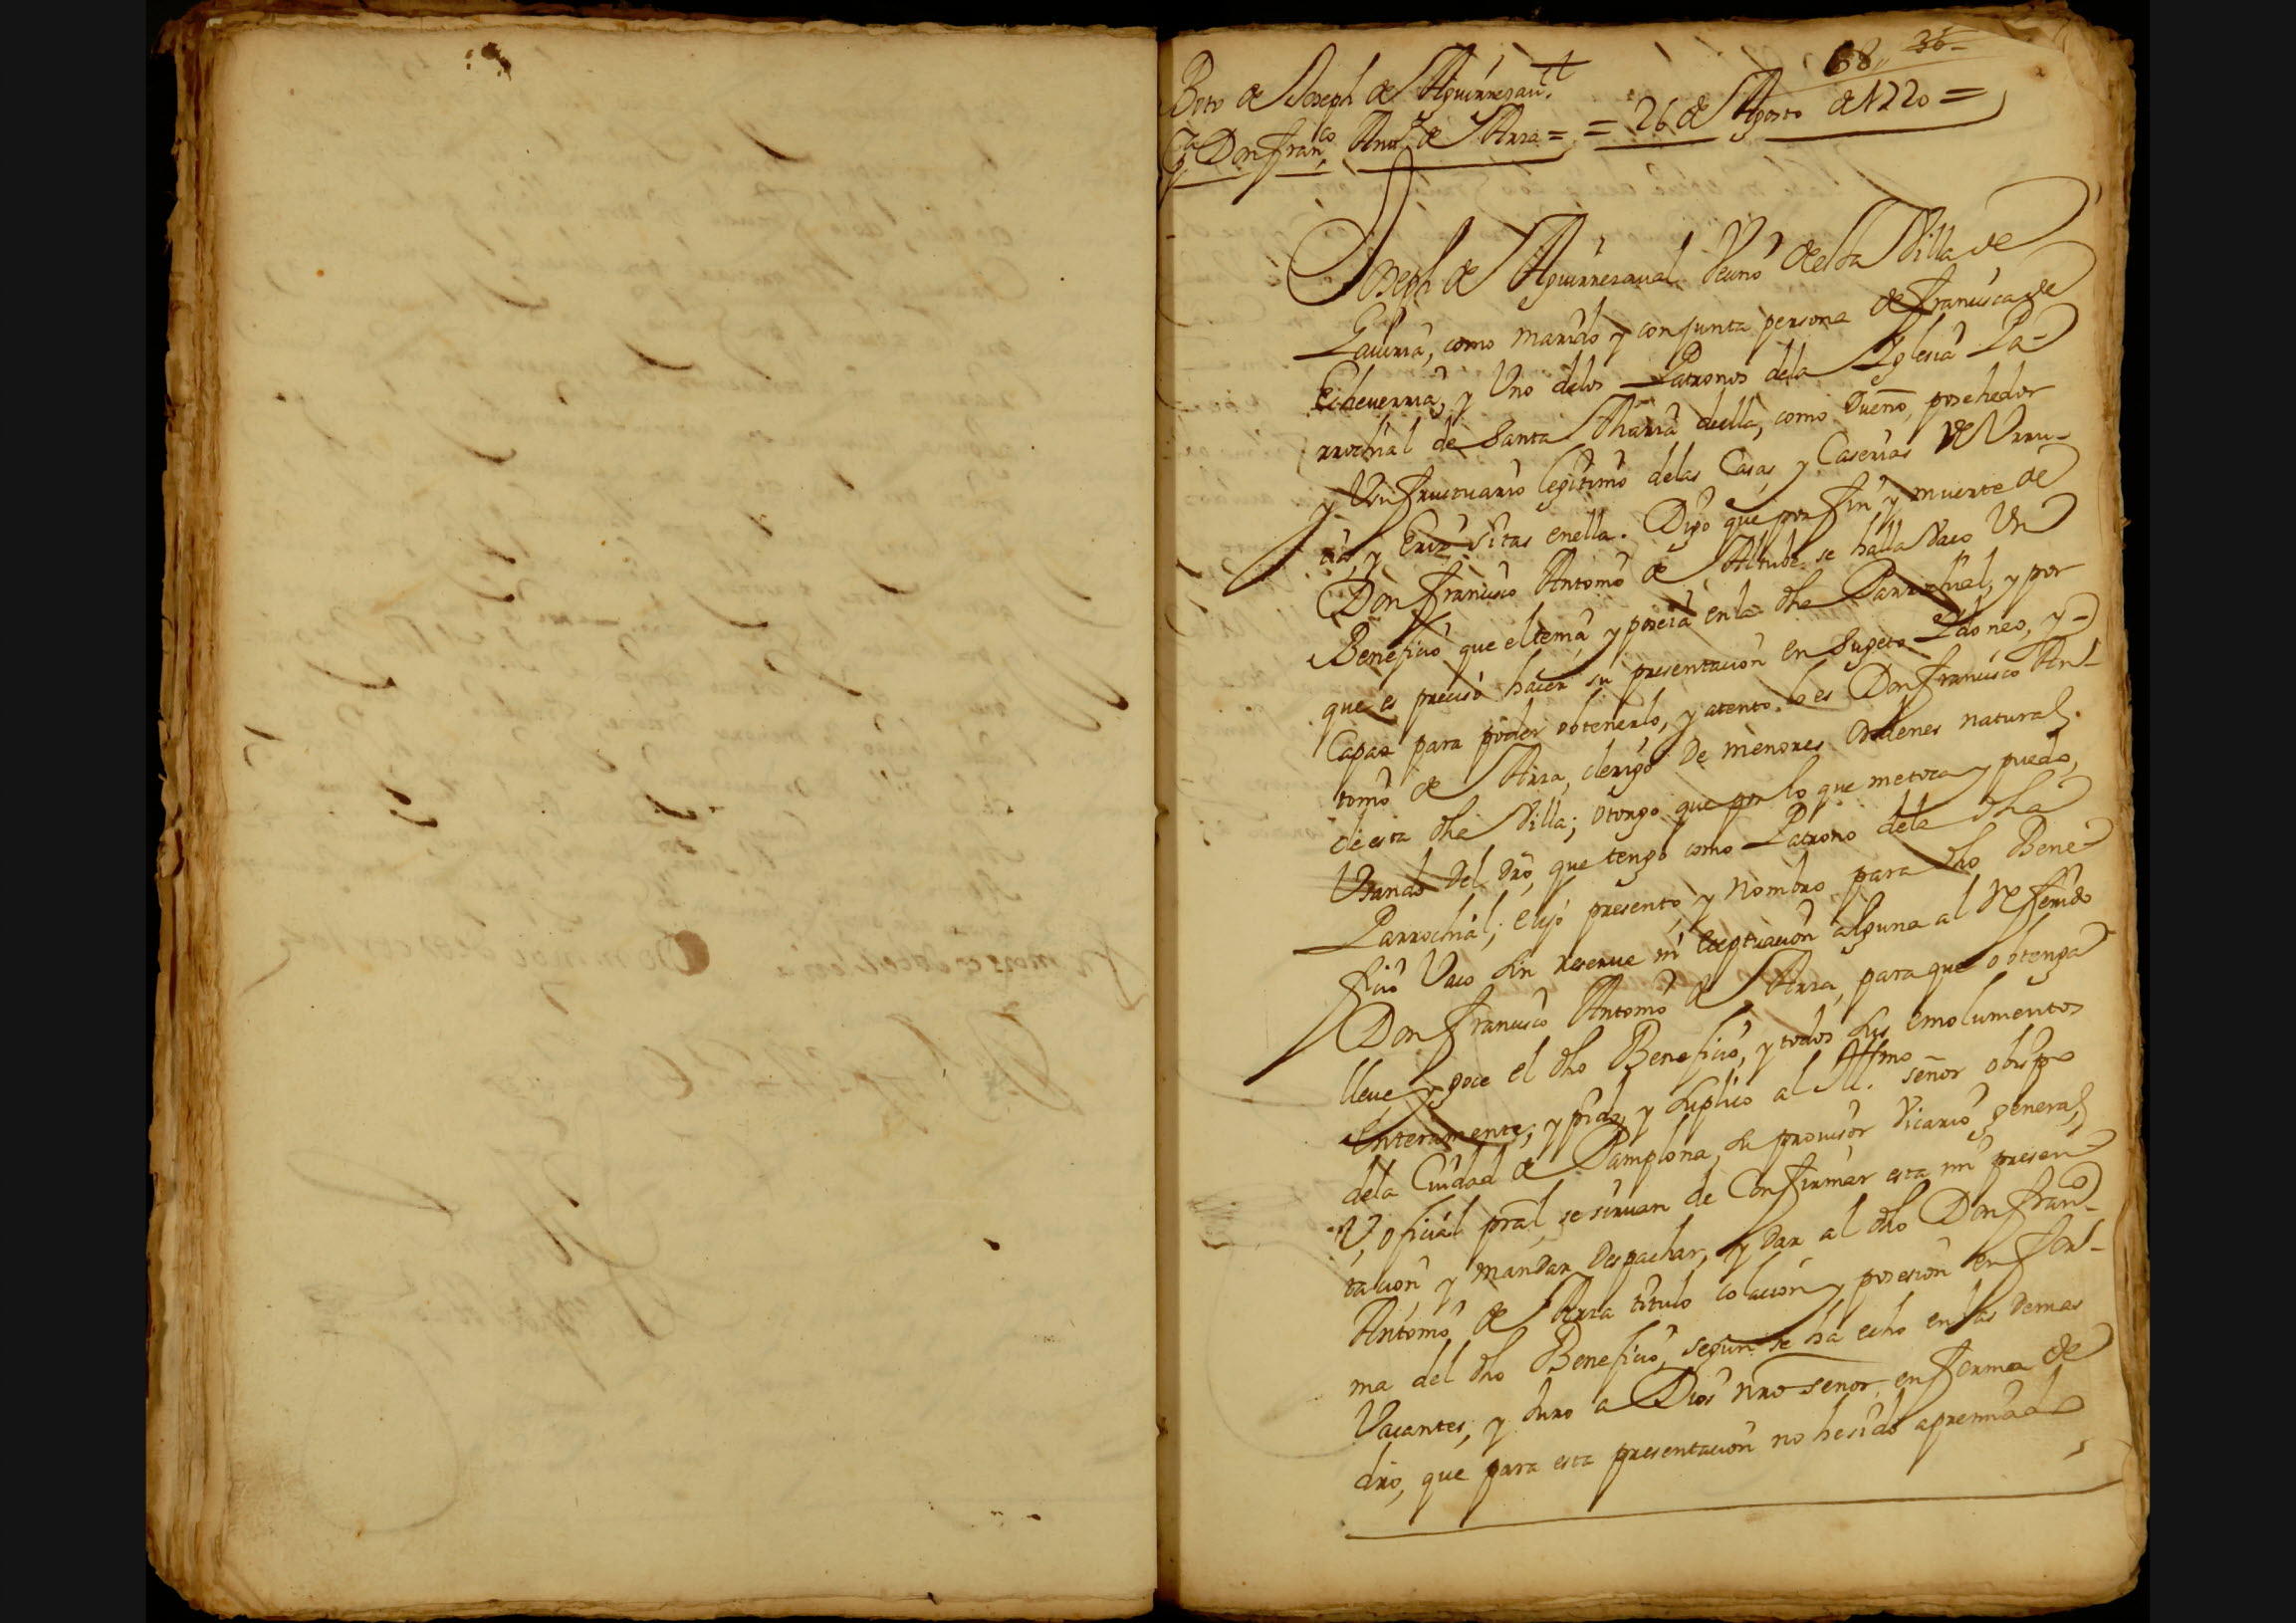 68,, 36-
Boto de Joseph de Aguirreçaul.
Pa Don Franco Anto de Arza = = 26 de Agosto de 1720 =
Joseph de Aguirreçaual Vecino desta Villa de
como marido y conjunta persona de Francisca de
Echeverria, y Uno delos Patronos dela Yglesia Pa-
rrochial de Santa Maria della, como Dueño, posehedor
y Usufructuario legitimo delas Casas y Caserias de Urru-
sitas enella. Digo que por fin y muerte de
Don Francisco Antonio de se halla Vaco Un
Beneficio que el tenia y poseia enla dha Parrochial, y por
que es preciso hacer su presentacion en Sugeto Ydoneo, y-
Capaz para poder obtenerlo, y atento lo es Don Francisco An-
tonio de Arza, clerigo De menores ordenes natural
de esta dha Villa; otorgo que por lo que metoca y puedo,
Usando del dro, que tengo como Patrono dela dha
Parrochial; elijo presento y nombro para dho Bene-
ficio Vaco sin reserue ni Eceptuacion alguna al Referido
Don Francisco Antonio de Arza, para que obtenga
lleue y goce el dho Beneficio, y todos sus emolumentos
Enteramente; y pido y suplico al Illmo señor obispo
dela Ciudad de Pamplona, su prouisor Vicario general,
V, oficial pral se siruan de Confirmar esta mi presen-
tacion y mandar Despachar, y Dar al dho Don Franco-
Antonio de Arza titulo colacion y posesion en for-
ma del dho Beneficio, segun se ha echo en las Demas
Vacantes; y Juro a Dios nro señor, en forma de
dro, que para esta presentacion no hesido apremiado